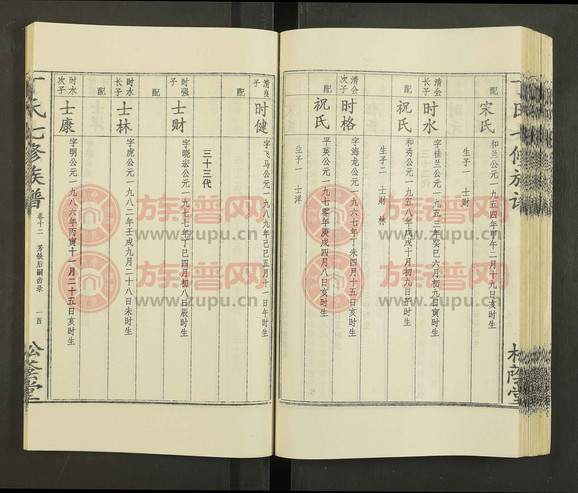 配
宋氏
和兰公元一九五四年甲午二月十九日亥时生
生子一 士财
清会长子
时水
字桂兰公元一九五三年癸巳六月初九日寅时生
配
祝氏
和秀公元一九五八年戊戌十月初九日午时生
生子二 士财 林
清会次子
时格
字海龙公元一九六七年丁未四月十五日亥时生
配
祝氏
平英公元一九七零年庚戌四月八日亥时生
生子一 士洋
清良子
时健
字飞马公元一九八九年己巳五月十一日午时生
配
三十三代
时强子
士财
字晓宏公元一九七七年丁巳四月初八日辰时生
配
时水长子
士林
字虎公元一九八二年壬戌九月二十八日未时生
配
时水次子
士康
字明公元一九八六年丙寅十一月二十五日亥时生
丁氏七修族谱
卷十二
芳铁后嗣齿录
一百
松荫堂
丁氏七修族谱
松荫堂
族谱网
www.zupu.cn
族谱网
www.zupu.cn
族谱网
www.zupu.cn
族谱网
www.zupu.cn